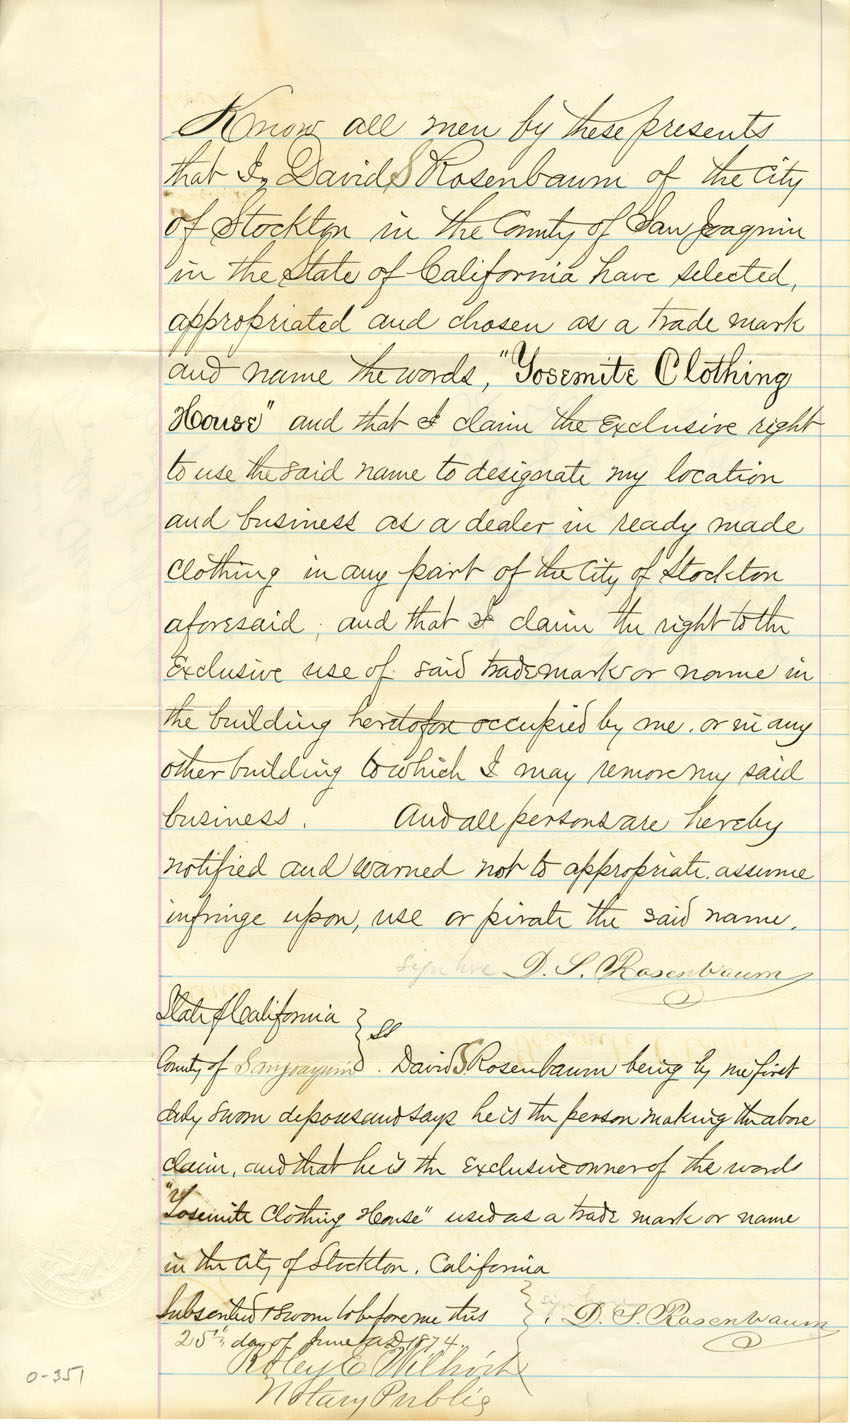 Know all men by these presents
that I, David S Rosenbaum of the City
of Stockton in the County of San Joaquin
in the State of California have selected,
appropriated and chosen as a trade mark
and name the words, "Yosemite Clothing
House" and that I claim the Exclusive right
to use the said name to designate my location
and business as a dealer in ready made
clothing in any part of the City of Stockton
aforesaid, and that I claim the right to the
Exclusive use of said trademark or name in
the building heretofore occupied by me, or in any
other building to which I may remove my said
business. And all persons are hereby
notified and warned not to appropriate, assume
infringe upon, use or pirate the said name.
sign here D. S. Rosenbaum
State of California } ss
County of San Joaquin. David S Rosenbaum being by me first
duly sworn deposes and says he is the person making the above
claim, and that he is the Exclusive owner of the words
"Yosemite Clothing House" used as a trade mark or name
in the City of Stockton, California
Subscribed & sworn to before me this } D. S. Rosenbaum
25th day of June AD 1874.
Notary Public
0-351